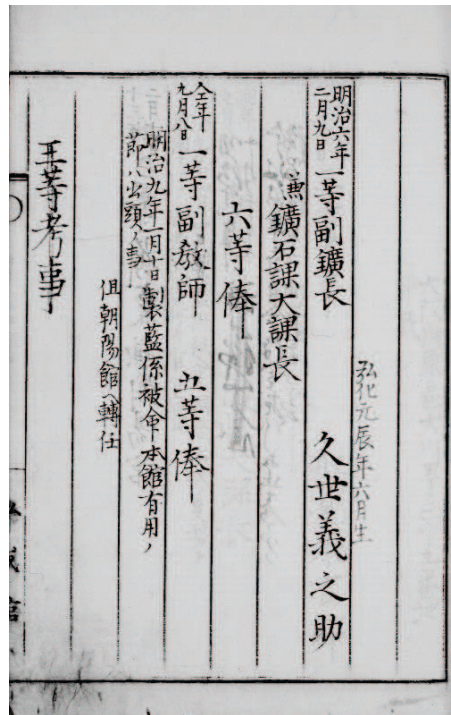 弘化元辰年六月生
明治六年二月九日 一等副鑛長 久世義之助
兼鑛石課大課長
六等俸
仝年九月八日 一等副教師 五等俸
明治九年一月十日製藍係被命本館有用ノ
節ハ出頭ノ事
但朝陽館ヘ轉任
五等考事